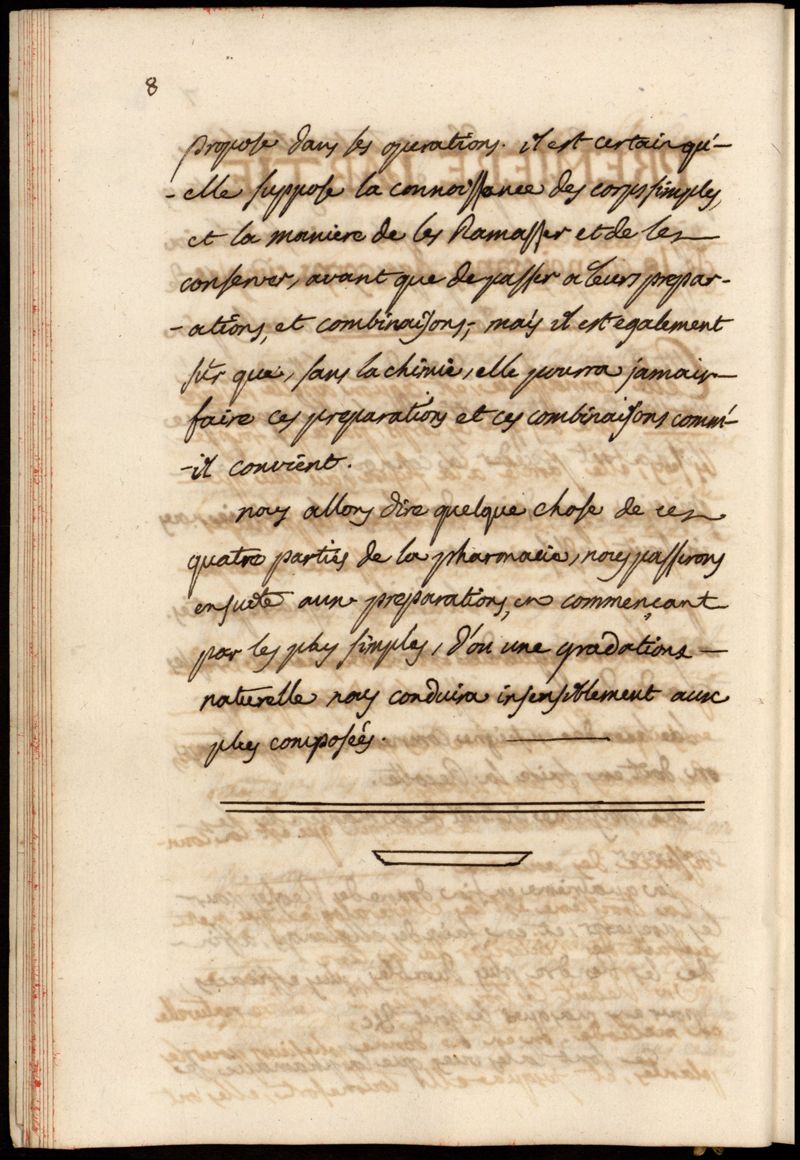 8
propose dans ses operations. il est certain qu'-
-elle suppose la connoissance des corps simples,
et la maniere de les Ramasser et de les
conserver, avant que de passer a leurs prepar-
-ations, et combinaisons; mais il est egalement
sûr que, sans la chimie, elle pourra jamais
faire ces preparations et ces combinaisons comm'-
-il convient.
nous allons dire quelque chose de ces
quatre parties de la pharmacie, nous passerons
ensuite aux preparations, en commencant
par les plus simples, d'ou une gradations
naturelle nous conduira insensiblement aux
plus composés.